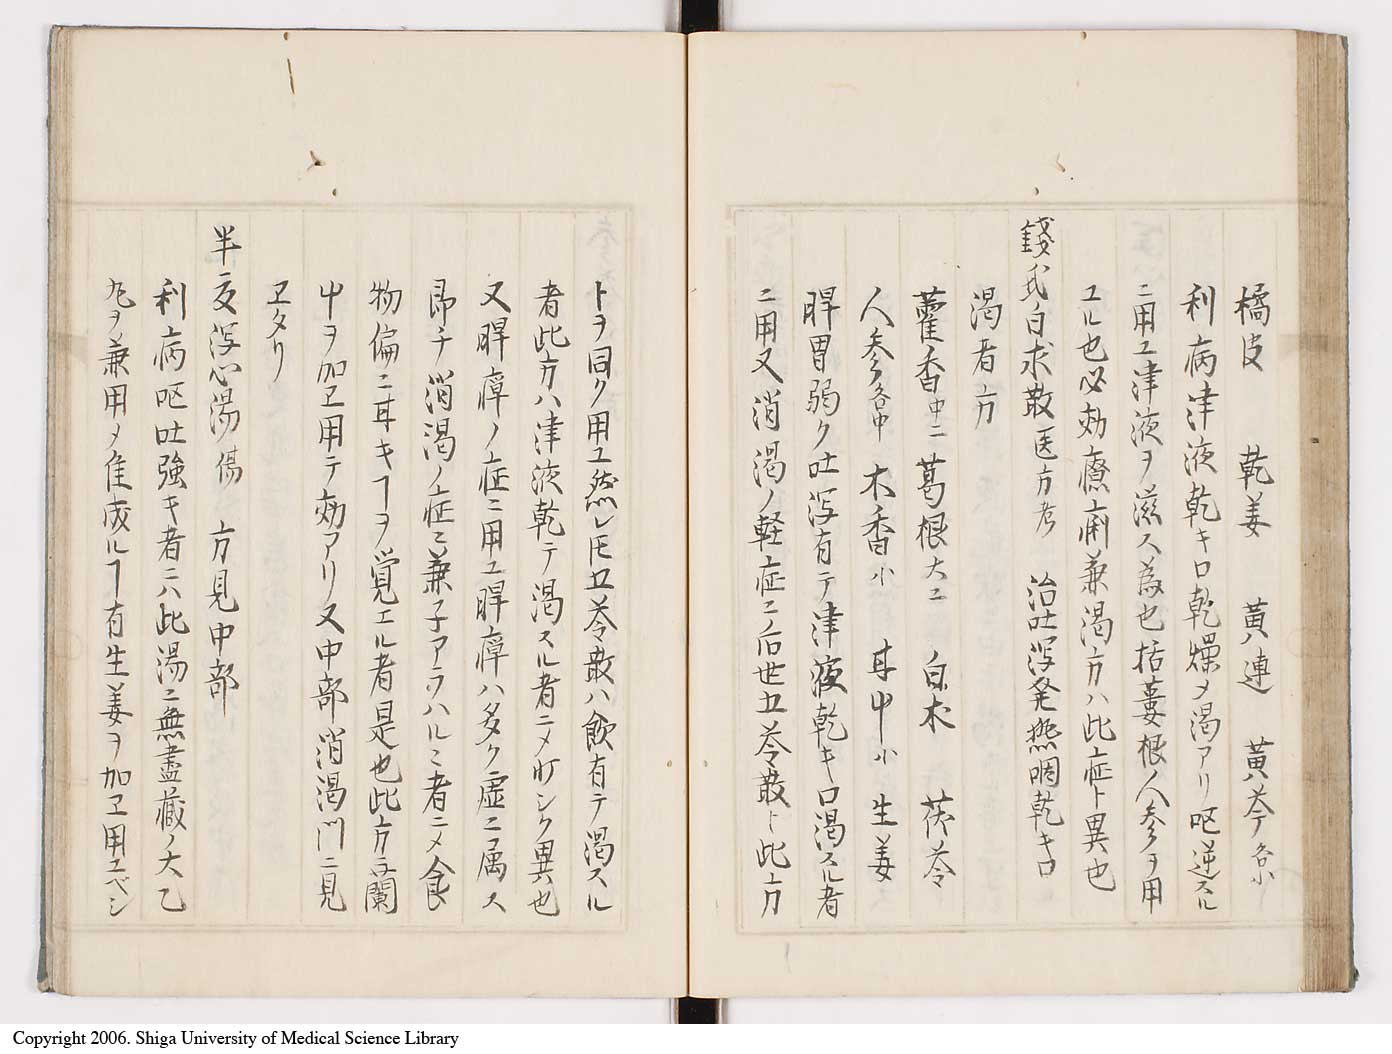 橘皮　乾姜　黄連　黄芩各小
利病津液乾キ口乾燥〆渇アリ呕逆スル
ニ用ユ津液ヲ滋ス為也栝蔞根人参ヲ用
ユル也必効癮痢兼渇方ハ此症ト異也
錢氏白朮散医方考　治吐瀉発熱咽乾キ口
渇者方
藿香中ニ葛根大ニ　白朮　茯苓
人参各中　木香小　甘中小　生姜
脾胃弱ク吐瀉有テ津液乾キ口渇スル者
ニ用又消渇ノ軽症ニ后世五苓散ト此方
トヲ同ク用ユ然レ𪜈五苓散ハ飲有テ渇スル
者此方ハ津液乾テ渇スル者ニ〆町シク異也
又脾癉ノ症ニ用ユ脾癉ハ多ク虚ニ属ス
即チ消渇ノ症ニ兼子アラハルヽ者ニ〆食
物偏ニ甘キヿヲ覚エル者是也此方ニ蘭
中ヲ加ヱ用テ効アリ又中部消渇門ニ見
ヱタリ
半夏瀉心湯傷　方見中部
利病呕吐強キ者ニハ此湯ニ無盡蔵ノ大乙
丸ヲ兼用〆隹成ルヿ有生姜ヲ加ヱ用ユベシ
Copyright 2006. Shiga University of Medical Science Library